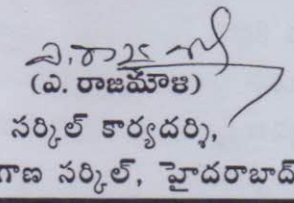 (ఎ. రాజమౌళి)
సర్కిల్ కార్యదర్శి,
గాణ సర్కిల్, హైదరాబాద్